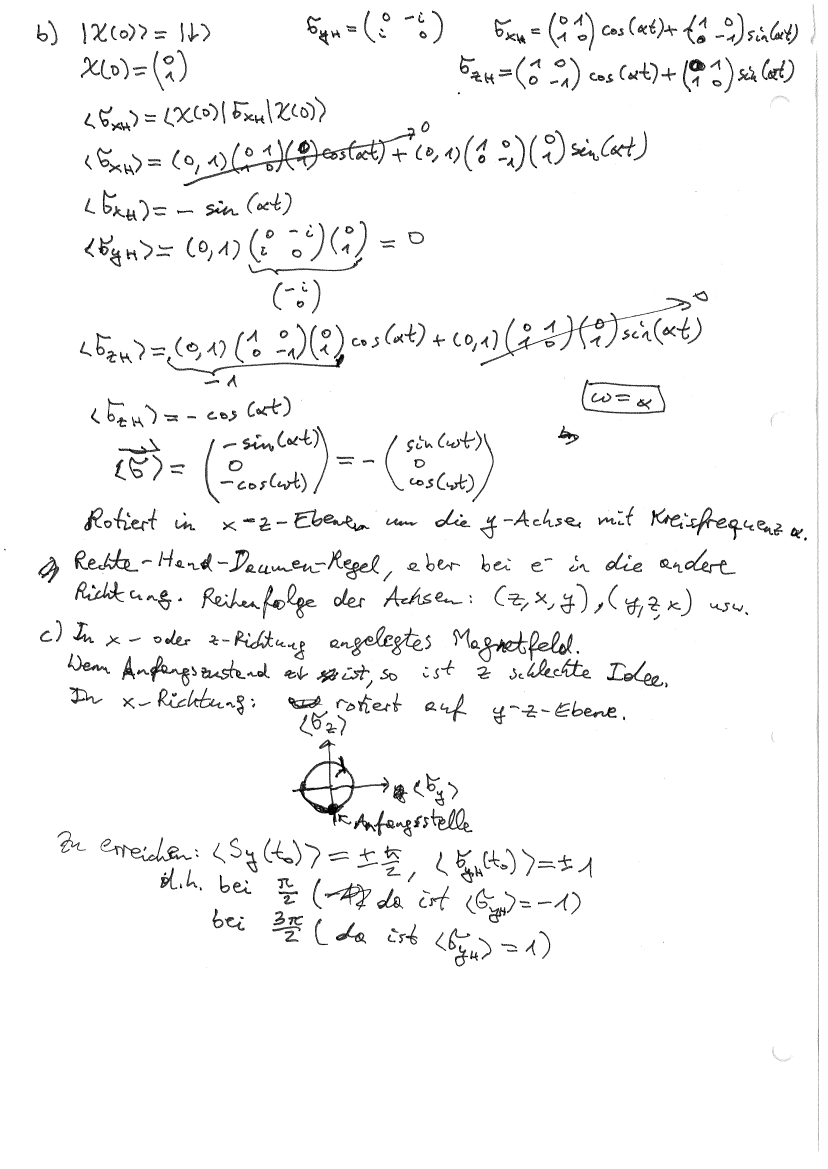 b) |χ(0)⟩ = |↓⟩   σ_yH = (0 -i; i 0)   σ_xH = (0 1; 1 0) cos(αt) + (1 0; 0 -1) sin(αt)
χ(0) = (0; 1)   σ_zH = (1 0; 0 -1) cos(αt) + (0 1; 1 0) sin(αt)
⟨σ_xH⟩ = ⟨χ(0)|σ_xH|χ(0)⟩
⟨σ_xH⟩ = (0,1)(0 1; 1 0)(0; 1) cos(αt) → 0 + (0,1)(1 0; 0 -1)(0; 1) sin(αt)
⟨σ_xH⟩ = - sin(αt)
⟨σ_yH⟩ = (0,1)(0 -i; i 0)(0; 1) = 0
(-i; 0)
⟨σ_zH⟩ = (0,1)(1 0; 0 -1)(0; 1) cos(αt) + (0,1)(0 1; 1 0)(0; 1) sin(αt) → 0
-1
⟨σ_zH⟩ = - cos(αt)   ω = α
⟨σ⃗⟩ = (-sin(αt); 0; -cos(ωt)) = - (sin(ωt); 0; cos(ωt))
Rotiert in x-z-Ebene um die y-Achse mit Kreisfrequenz α.
Rechte-Hand-Daumen-Regel, aber bei e⁻ in die andere
Richtung. Reihenfolge der Achsen: (z,x,y), (y,z,x) usw.
c) In x- oder z-Richtung angelegtes Magnetfeld.
Wenn Anfangszustand ist, so ist z schlechte Idee.
In x-Richtung: rotiert auf y-z-Ebene.
⟨σ_z⟩
⟨σ_y⟩
Anfangsstelle
Zu erreichen: ⟨S_y(t₀)⟩ = ± ħ/2, ⟨σ_yH(t₀)⟩ = ±1
d.h. bei π/2 (da ist ⟨σ_yH⟩ = -1)
bei 3π/2 (da ist ⟨σ_yH⟩ = 1)